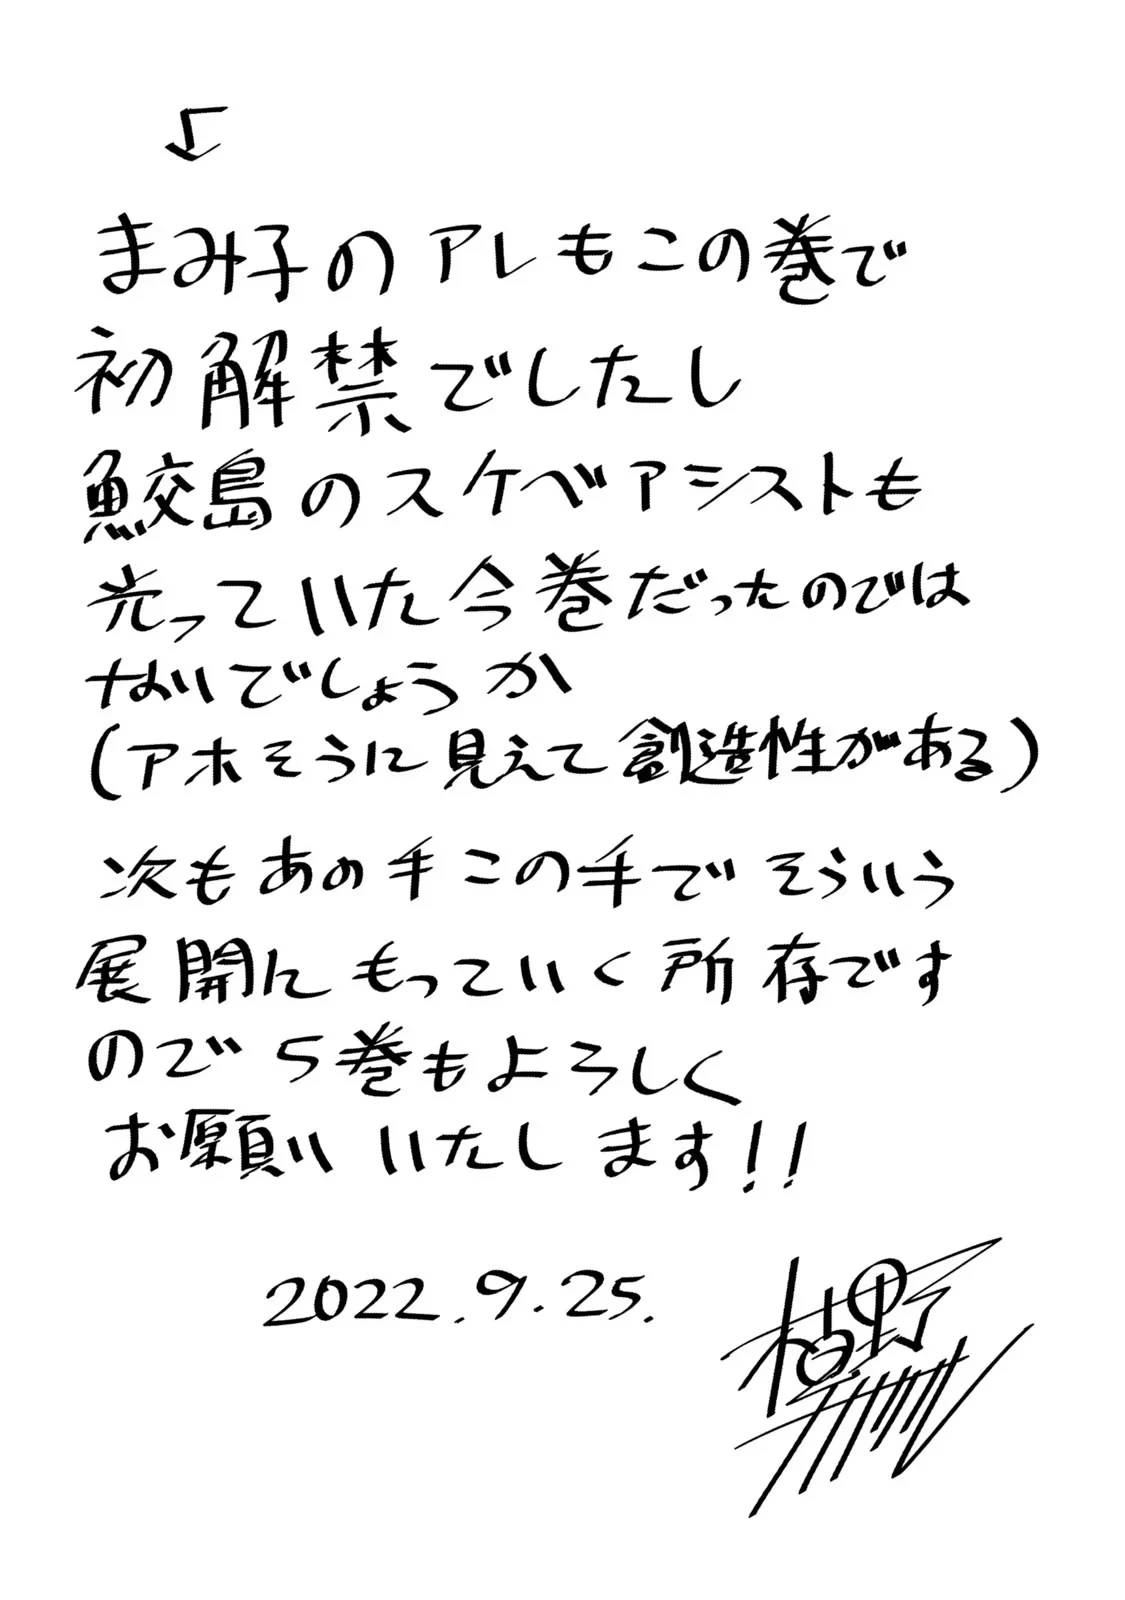 まみ子のアレもこの巻で
初解禁でしたし
鮫島のスケベアシストも
光っていた今巻だったのでは
ないでしょうか
(アホそうに見えて創造性がある)
次もあの手この手でそういう
展開にもっていく所存です
ので5巻もよろしく
お願いいたします!!
2022.9.25.